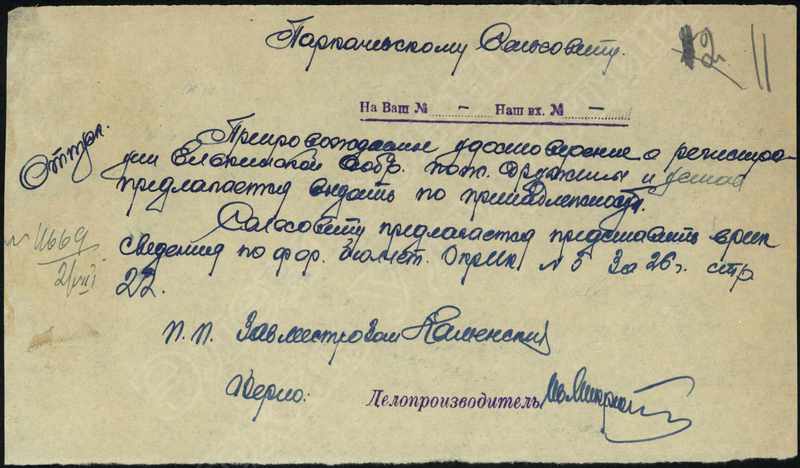 Сельсовету.
2 11
На Ваш № — Наш вх. № —
Оттр.
Препровождаемые удостоверение о регистра-
ции добр. пож. дружины и устав
предлагается выдать по принадлежности.
Сельсовету предлагается представить врик
сведения по фор. бюлет. № 5 за 26 г. стр
22.
№ 11669
21/VII
п. п. Завместрохом
Верно:
Делопроизводитель